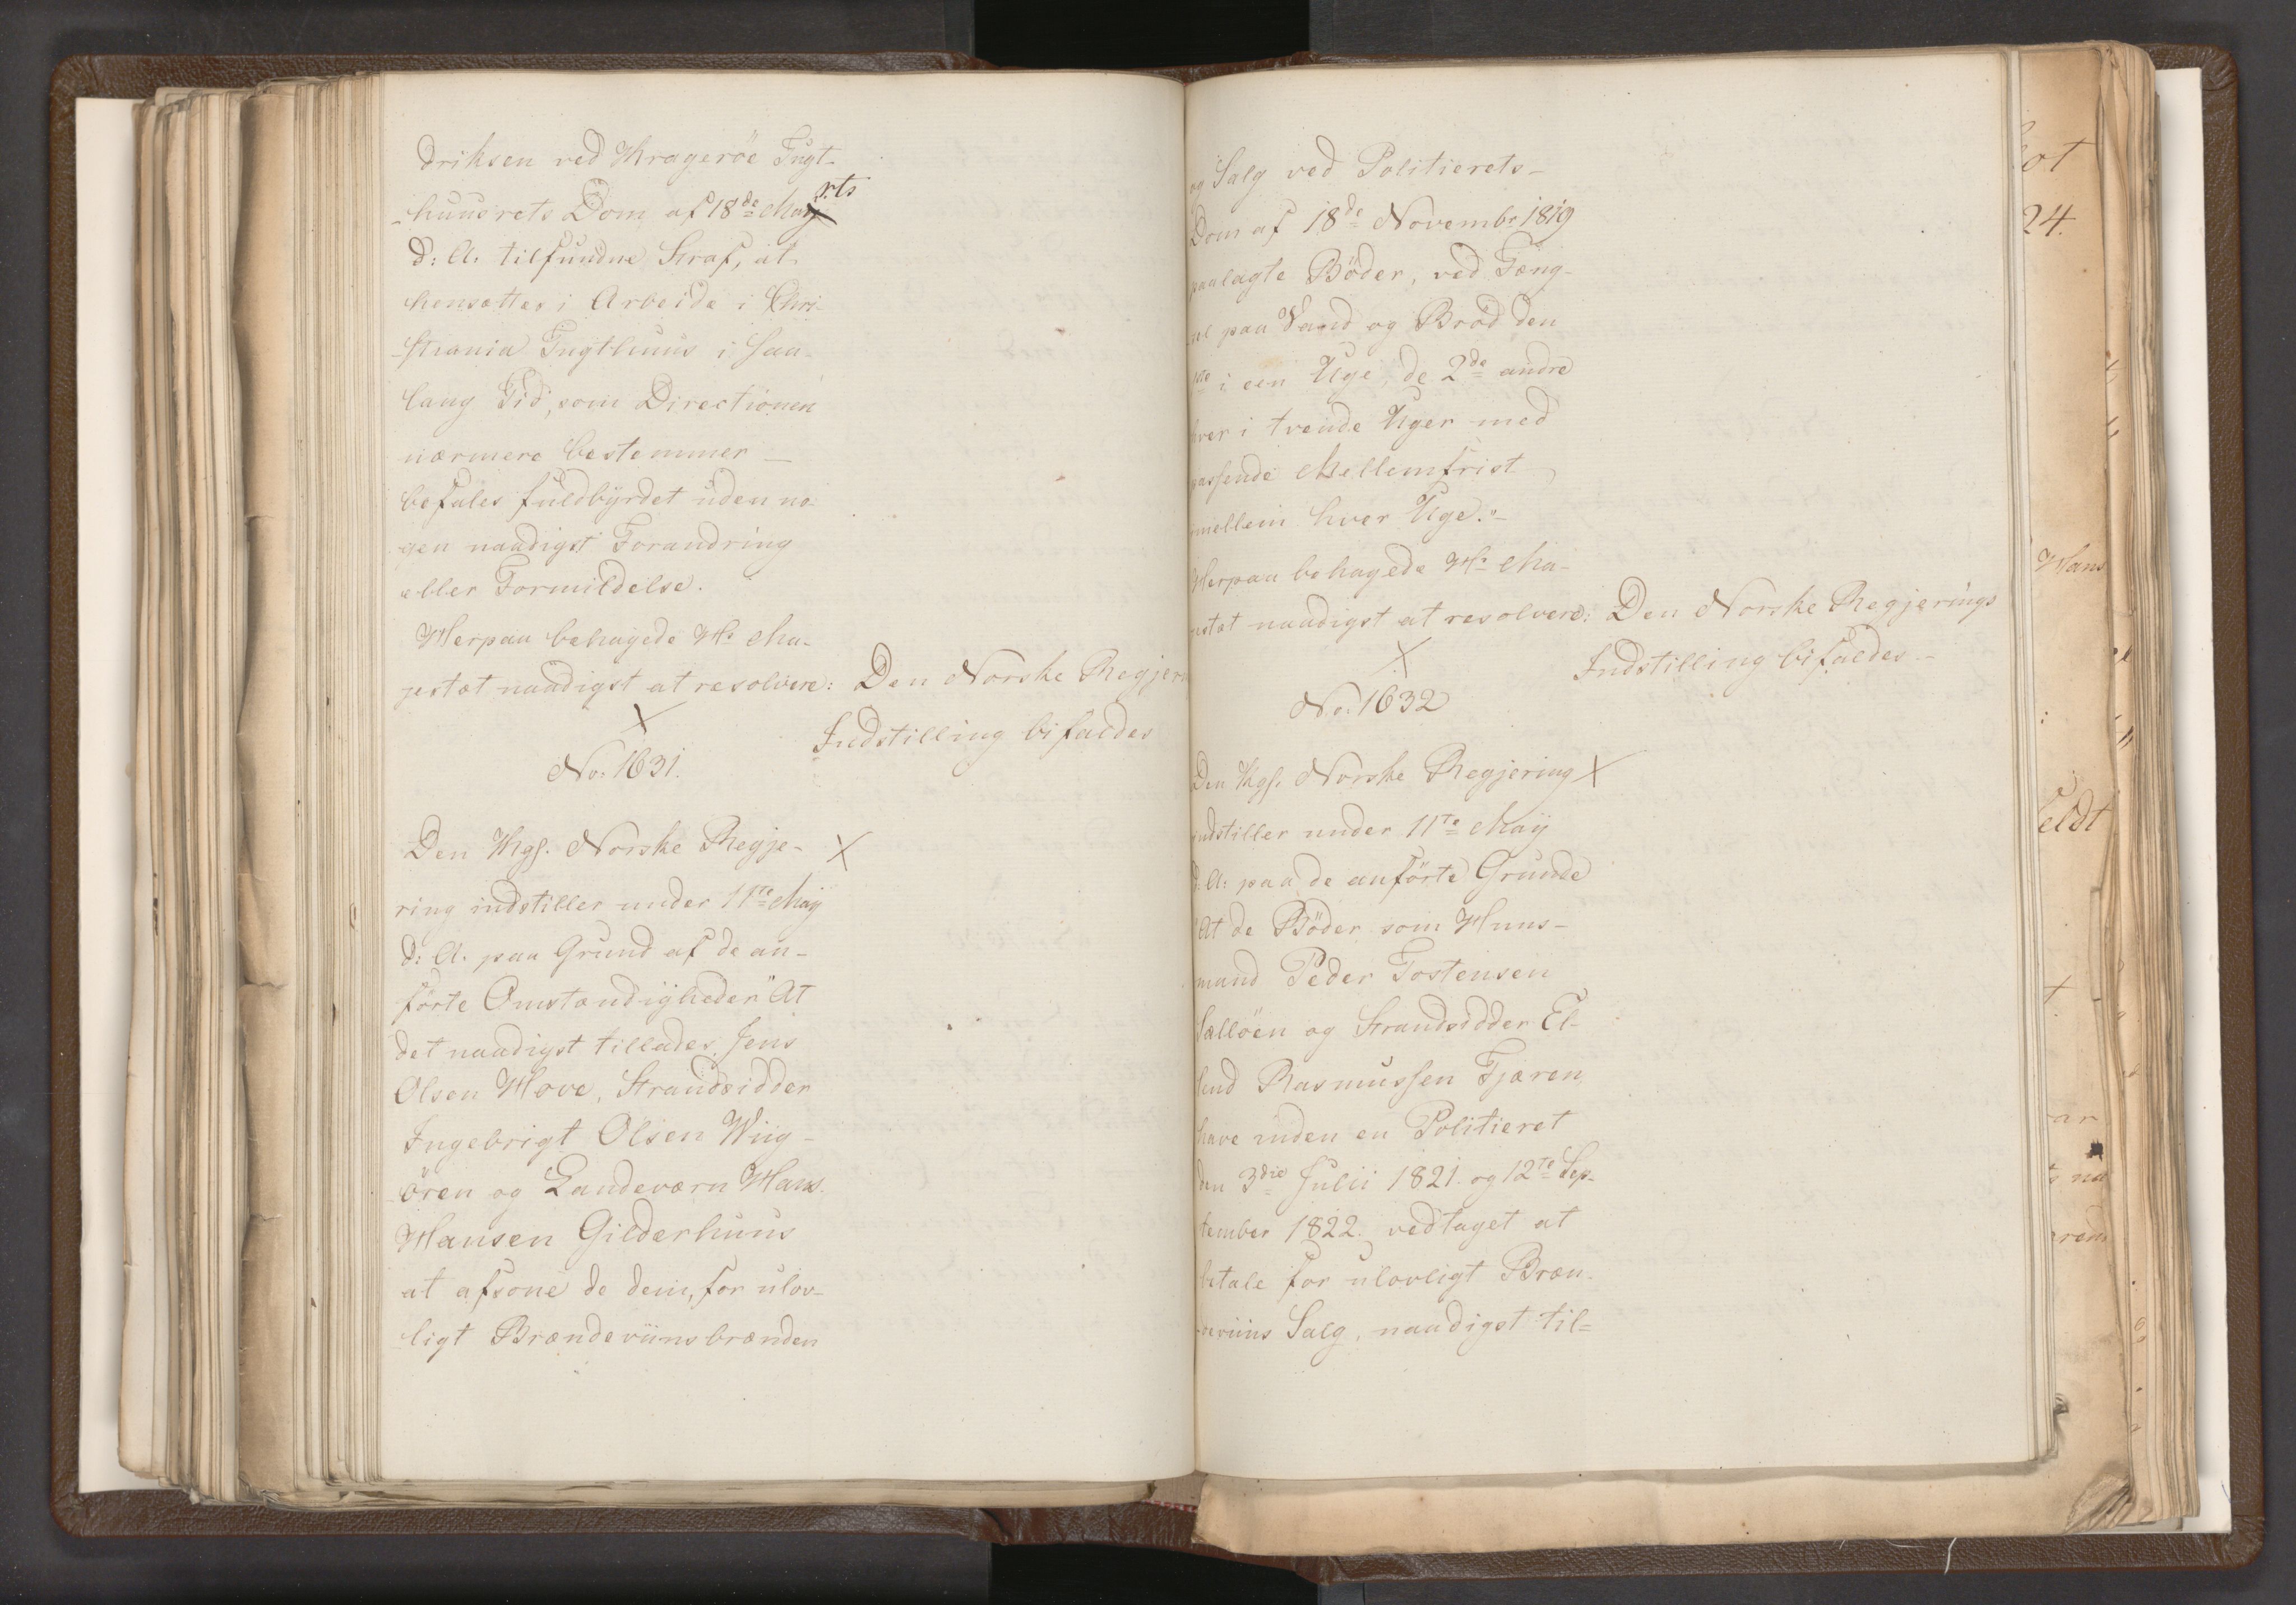 driksen ved Krageröe Tugt-
-huusrets Dom af 18de Marts
d: A. tilfundne Straf, at
hensættes i Arbeide i Chri-
-stiania Tugthuus i saa
lang Tid, som Directionen
nærmere bestemmer —
befales fuldbyrdet uden no-
gen naadigst Forandring
eller Formildelse.
Herpaa behagede Hs Ma-
jestæt naadigst at resolvere: Den Norske Regjer
Indstilling bifaldes
X
No: 1631.
Den Kgs. Norske Regje- X
ring indstiller under 11te May
d: A. paa Grund af de an-
förte Omstændigheder "At
det naadigst tillades Jens
Olsen Hove, Strandsidder
Ingebrigt Olsen Wiig-
-ören og Landeværn Hans
Hansen Gilderhuus
at afsone de dem, for ulov-
ligt Brændeviinsbrænden
og Salg ved Politierets-
Dom af 18de Novembr 1819
paalagte Böder, ved Fæng-
sel paa Vand og Bröd den
1ste i een Uge, de 2de andre
hver i tvende Uger med
passende Mellemfrist
imellem hver Uge."-
Herpaa behagede Hs Ma-
jestæt naadigst at resolvere: Den Norske Regjerings
Indstilling bifaldes -
X
No: 1632
Den Kgs. Norske Regjering X
indstiller under 11te May
d: A: paa de anförte Grunde
"At de Böder som Huus-
mand Peder Tostensen
Sællöen og Strandsidder El-
lend Rasmussen Tjæren
have inden en Politieret
den 3die Julii 1821. og 12te Sep-
tember 1822. vedtaget at
betale for ulovligt Bræn-
-deviins Salg, naadigst til=
24.
Hans
feldt